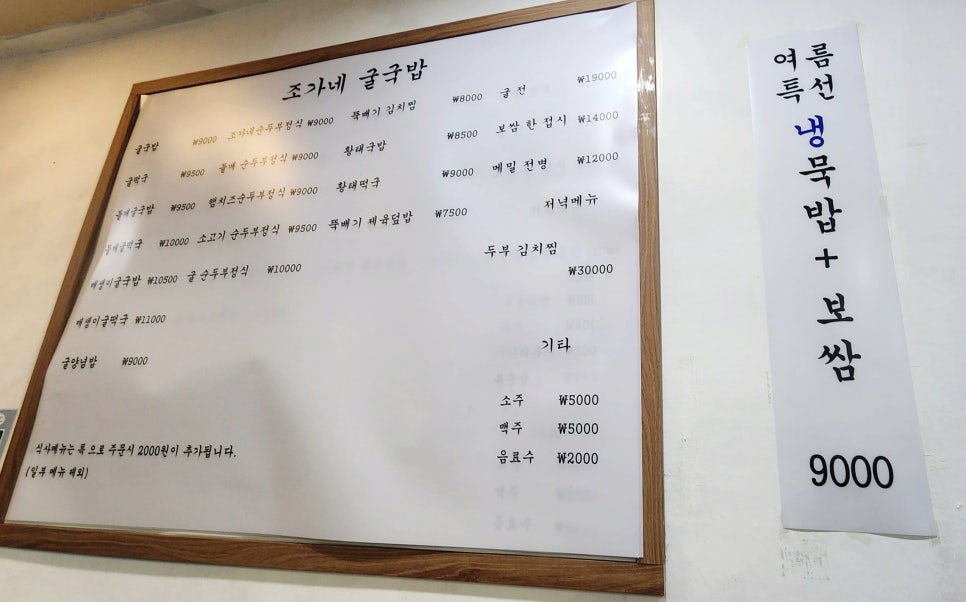 조가네 굴국밥
굴국밥 ₩9000
굴떡국 ₩9500
들깨굴국밥 ₩9500
들깨굴떡국 ₩10000
매생이굴국밥 ₩10500
매생이굴떡국 ₩11000
굴양념밥 ₩9000
조가네순두부정식 ₩9000
들깨 순두부정식 ₩9000
햄치즈순두부정식 ₩9000
소고기 순두부정식 ₩9500
굴 순두부정식 ₩10000
뚝배기 김치찜 ₩8000
황태국밥 ₩8500
황태떡국 ₩9000
뚝배기 제육덮밥 ₩7500
굴전 ₩19000
보쌈 한 접시 ₩14000
메밀 전병 ₩12000
저녁메뉴
두부 김치찜
₩30000
기타
소주 ₩5000
맥주 ₩5000
음료수 ₩2000
식사메뉴는 특으로 주문시 2000원이 추가됩니다.
(일부 메뉴 제외)
여름
특선
냉
묵
밥
+
보
쌈
9000